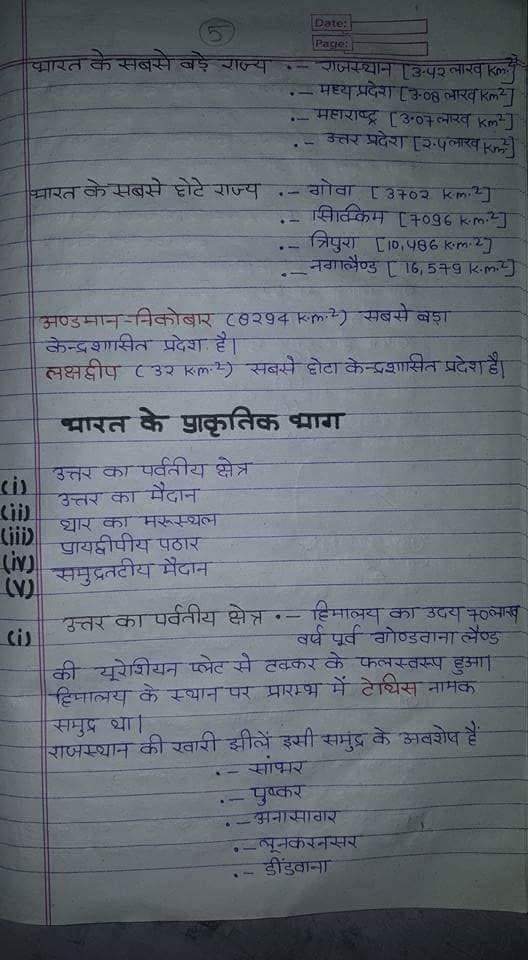 5
Date:
Page:
भारत के सबसे बड़े राज्य .– राजस्थान [3.42 लाख Km.²]
.– मध्य प्रदेश [3.08 लाख Km²]
.– महाराष्ट्र [3.07 लाख Km²]
.– उत्तर प्रदेश [2.4 लाख Km²]
भारत के सबसे छोटे राज्य .– गोवा [3702 K.m.²]
.– सिक्किम [7096 K.m.²]
.– त्रिपुरा [10,486 K.m.²]
.– नगालैण्ड [16,579 K.m.²]
अण्डमान-निकोबार (8294 K.m.²) सबसे बड़ा
केन्द्रशासित प्रदेश है।
लक्षद्वीप (32 K.m.²) सबसे छोटा केन्द्रशासित प्रदेश है।
भारत के प्राकृतिक भाग
(i) उत्तर का पर्वतीय क्षेत्र
(ii) उत्तर का मैदान
(iii) थार का मरूस्थल
(iv) प्रायद्वीपीय पठार
(v) समुद्रतटीय मैदान
(i) उत्तर का पर्वतीय क्षेत्र .– हिमालय का उदय 70 लाख
वर्ष पूर्व गोण्डवाना लैण्ड
की यूरेशियन प्लेट से टक्कर के फलस्वरूप हुआ।
हिमालय के स्थान पर प्रारम्भ में टेथिस नामक
समुद्र था।
राजस्थान की खारी झीलें इसी समुद्र के अवशेष हैं
.– सांभर
.– पुष्कर
.– अनासागर
.– लूनकरनसर
.– डीडवाना